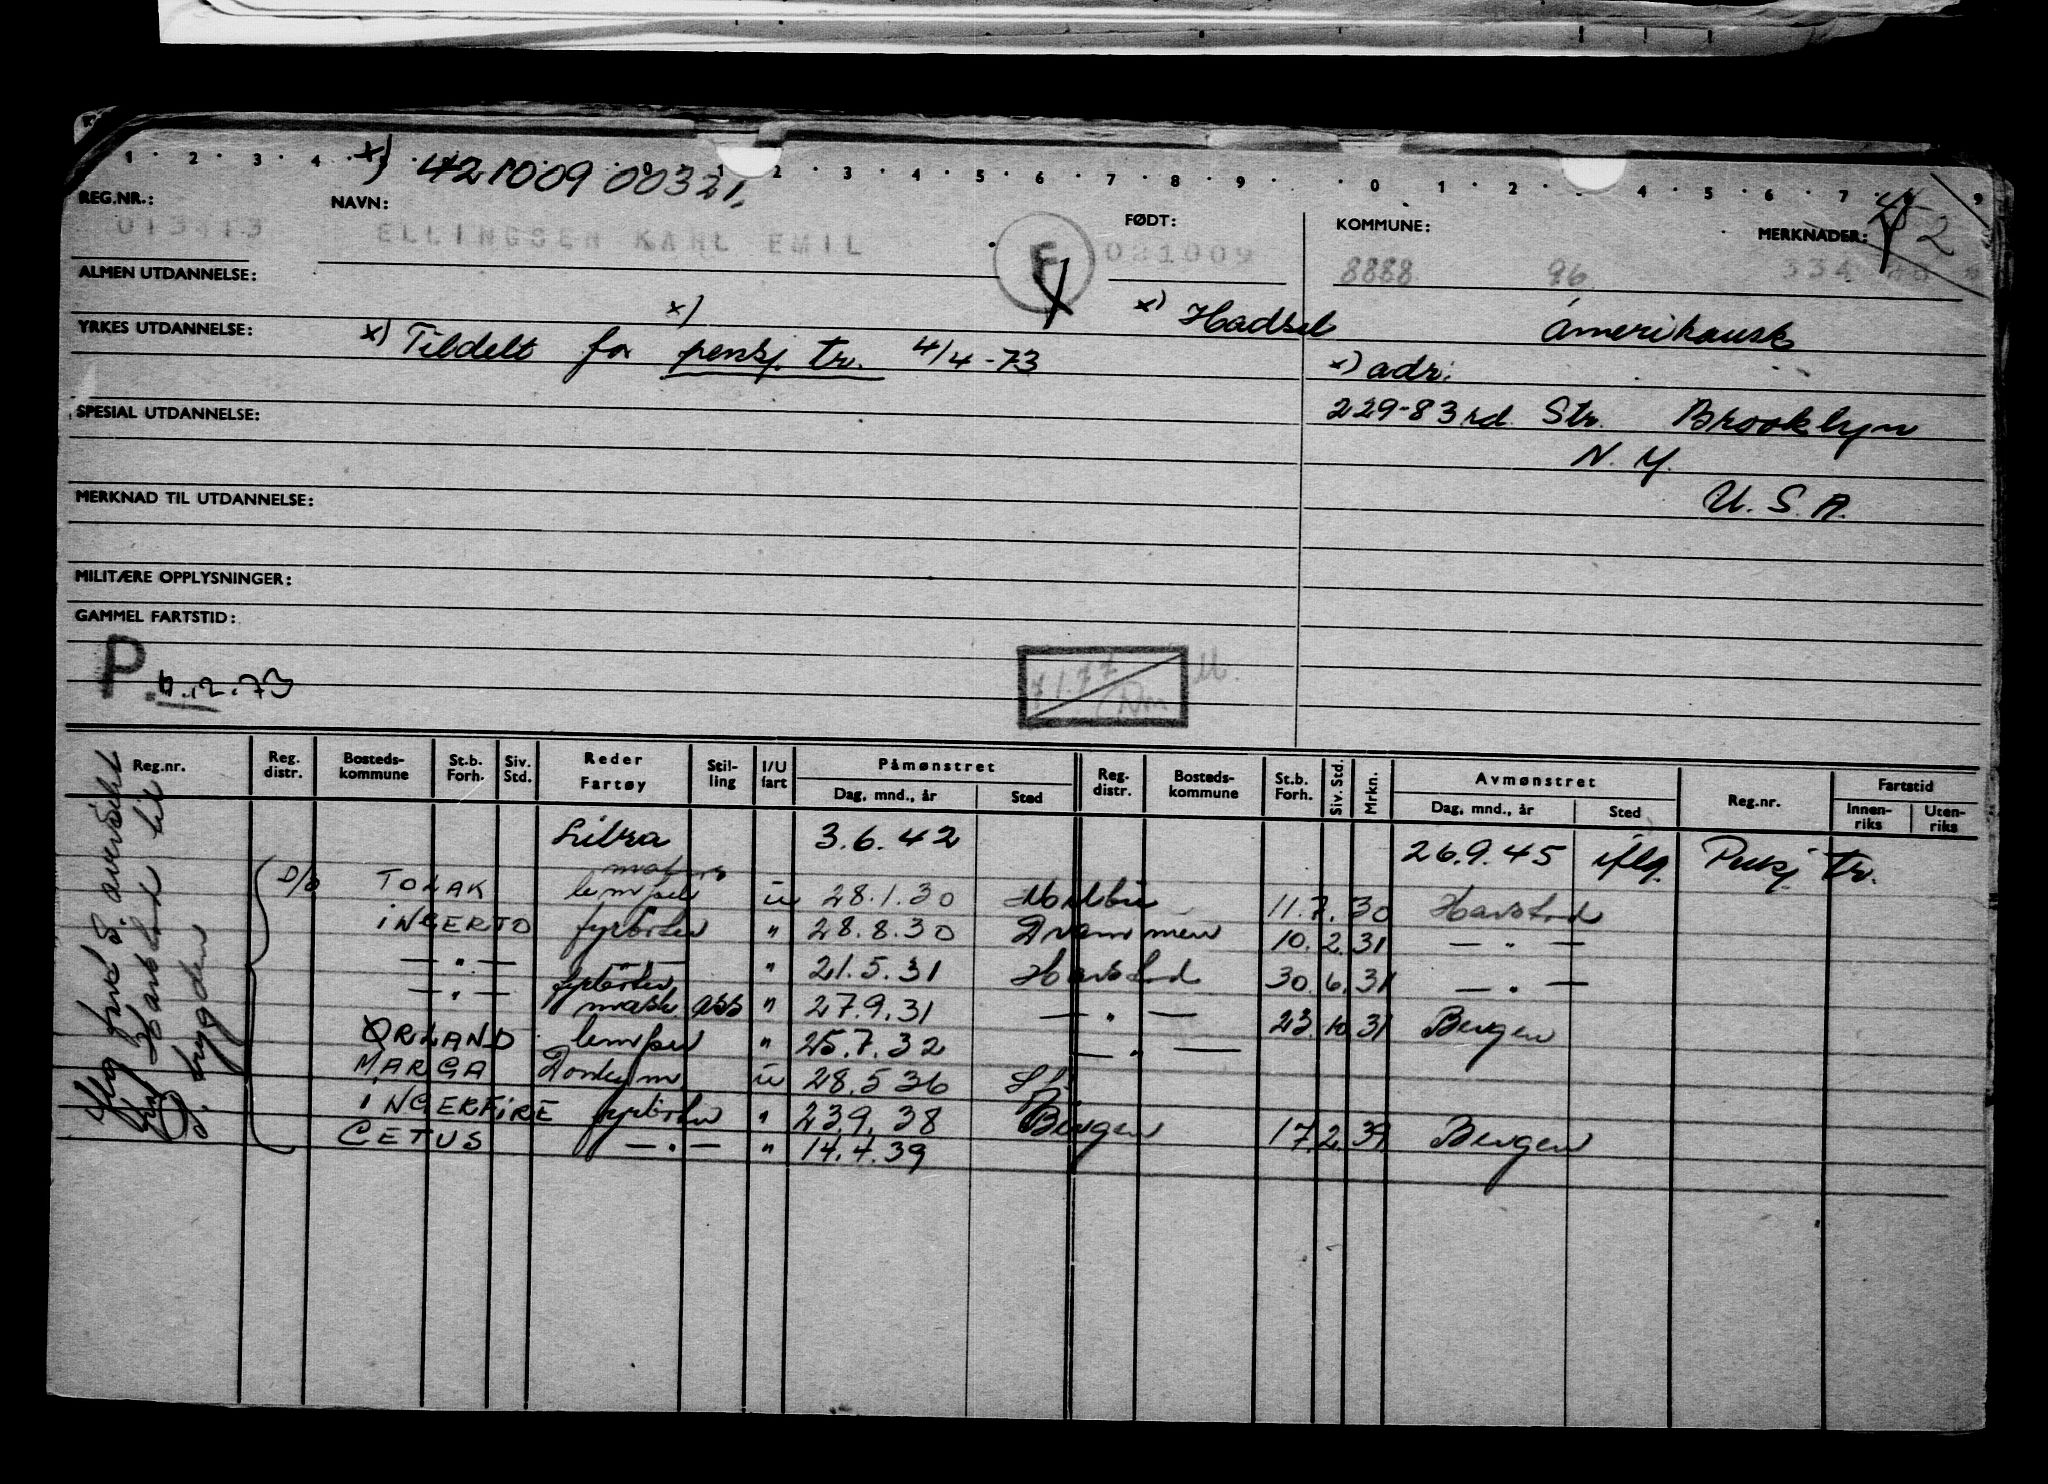 1 · 2 · 3 · 4 · x) 42 1009 00321, 1 2 · 3 · 4 · 5 · 6 · 7 · 8 · 9 · · 0 1 · 2 · 4 · 5 · 6 · 7 9
REG.NR.: NAVN: FØDT: KOMMUNE: MERKNADER: 2
013413 ELLINGSEN KARL EMIL F 021009 8888 96 334
ALMEN UTDANNELSE:
x) x) Hadsel amerikansk
YRKES UTDANNELSE: x) Tildelt for pensj. tr. 4/4-73
x) adr:
SPESIAL UTDANNELSE: 229-83rd. Str. Brooklyn
N. Y.
MERKNAD TIL UTDANNELSE: U. S. A.
MILITÆRE OPPLYSNINGER:
GAMMEL FARTSTID:
P. .12.73
Reg.nr. Reg. distr. Bosteds-kommune St.b. Forh. Siv. Std. Reder Fartøy Stil-ling I/U fart Påmønstret Reg-distr. Bosteds-kommune St.b. Forh. Siv. Std. Mrkn. Avmønstret Reg.nr. Fartstid
Dag, mnd., år Sted Dag, mnd., år Sted Innen-riks Uten-riks
Libra 3.6.42 26.9.45 iflg. Pensj. tr.
matros
D/S TOLAK lemper u 28.1.30 Melbu 11.7.30 Harstad
INGERTO fyrbøter " 28.8.30 Drammen 10.2.31 — " —
— " — — " 21.5.31 Harstad 30.6.31 — " —
— " — fyrbøter
mask ass " 27.9.31 — " — 23.10.31 Bergen
ØRLAND lemper " 25.7.32 — " —
MARGA Donkeym u 28.5 36
INGERFIRE fyrbøter " 23.9.38 Bergen 17.2.39 Bergen
CETUS — " — " 14.4.39